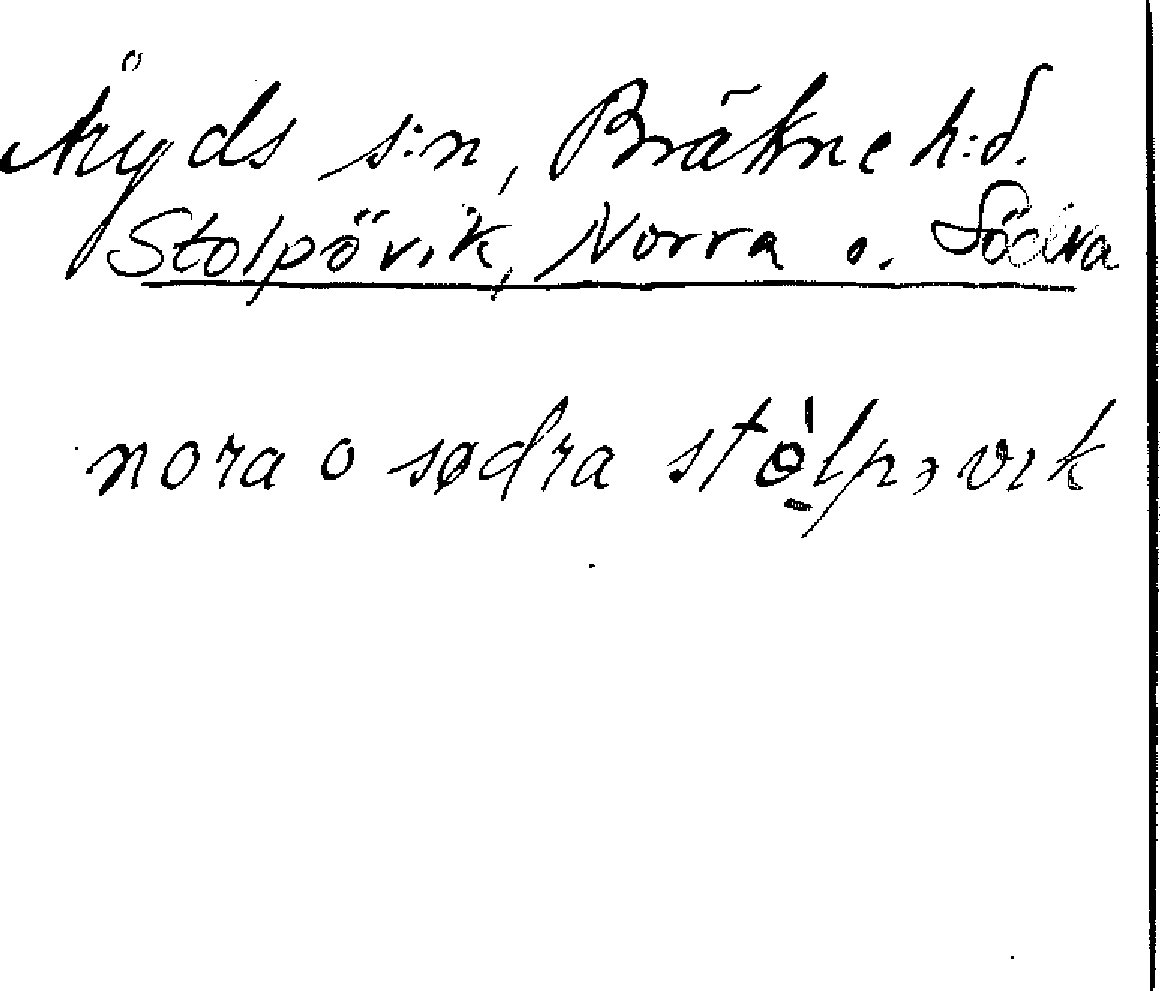 Åryds s:n, Bräkne h:d.
Stolpövik, Norra o. Södra
nora o sødra stòlpɔvık